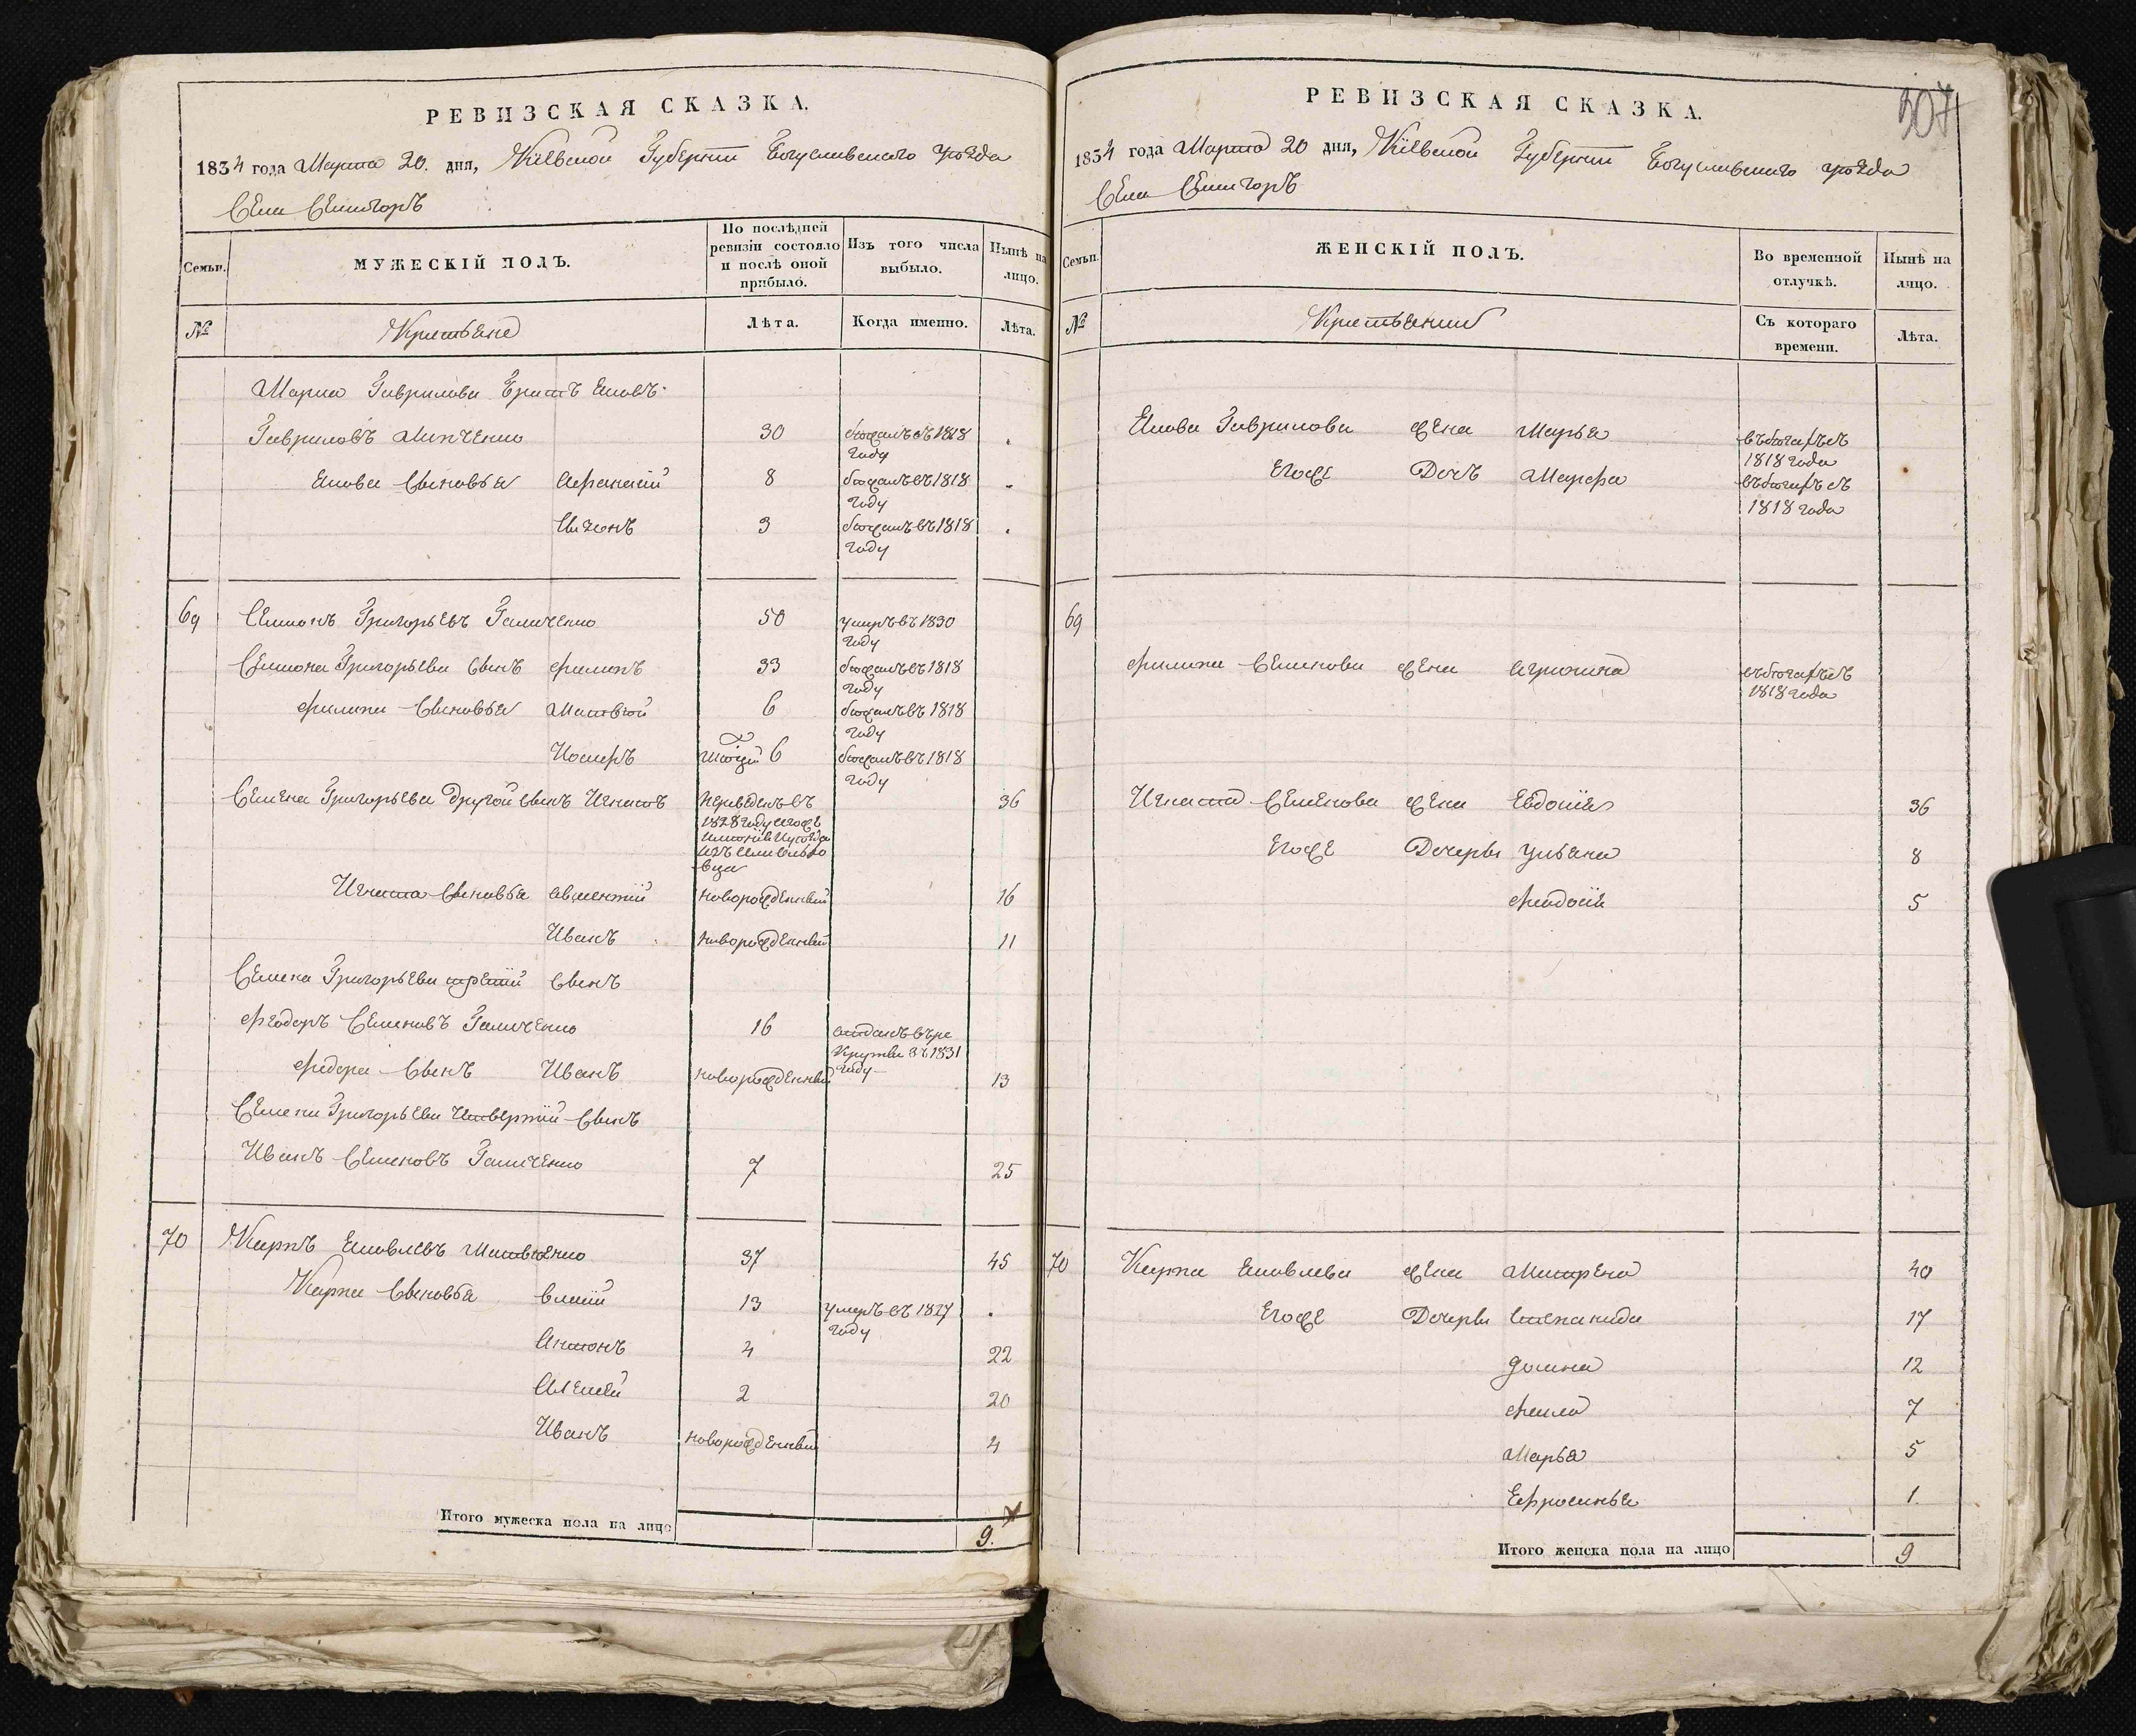 РЕВИЗСКАЯ СКАЗКА.
1834 года Марта 20. дня, Кіевской Губерніи Богуславскаго уѣзда
Села Селигоръ
Семьи.
МУЖЕСКІЙ ПОЛЪ.
По послѣдней ревизіи состояло и послѣ оной прибыло.
Изъ того числа выбыло.
Нынѣ на лицо.
№
Крестьяне
Лѣта.
Когда именно.
Лѣта.
Марка Гаврилова Братъ Яковъ
Гавриловъ 30 бѣжалъ въ 1818 году
Якова Сыновья Афанасій 8 бѣжалъ въ 1818 году
3 бѣжалъ въ 1818 году
69 Симонъ Григорьевъ Галиченко 50 умеръ въ 1830 году
Симона Григорьева Сынъ Филипъ 33 бѣжалъ въ 1818 году
Филипа Сыновья Матвѣй 6 бѣжалъ въ 1818 году
Иосифъ 6 бѣжалъ въ 1818 году
Семена Григорьева другой сынъ Игнатъ переведенъ въ 1828 году 36
Игната Сыновья Авксентій новорожденный 16
Иванъ новорожденный 11
Семена Григорьева третій Сынъ
Феодоръ Семеновъ Галиченко 16 отданъ въ рекруты въ 1831 году
Федора Сынъ Иванъ новорожденный 13
Семена Григорьева четвертый Сынъ
Иванъ Семеновъ Галиченко 7 25
70 Карпъ Яковлевъ Матвѣенко 37 45
Карпа Сыновья Власій 13 умеръ въ 1827 году
Антонъ 4 22
Алексѣй 2 20
Иванъ новорожденный 4
Итого мужеска пола на лицо 9.
307
РЕВИЗСКАЯ СКАЗКА.
1834 года Марта 20 дня, Кіевской Губерніи Богуславскаго уѣзда
Села Селигоръ
Семьи.
ЖЕНСКІЙ ПОЛЪ.
Во временной отлучкѣ.
Нынѣ на лицо.
№
Крестьянки
Съ котораго времени.
Лѣта.
Якова Гаврилова жена Марья въ бѣгахъ съ 1818 года
Егожъ Дочь Марфа въ бѣгахъ съ 1818 года
69
Филипа Семенова жена Агрипина въ бѣгахъ съ 1818 года
Игната Семенова жена Евдокія 36
Егоже Дочери Ульяна 8
Феодосія 5
70 Карпа Яковлева жена Матрена 40
Егоже Дочери Степанида 17
Домна 12
Фекла 7
Марья 5
Ефросинья 1.
Итого женска пола на лицо 9